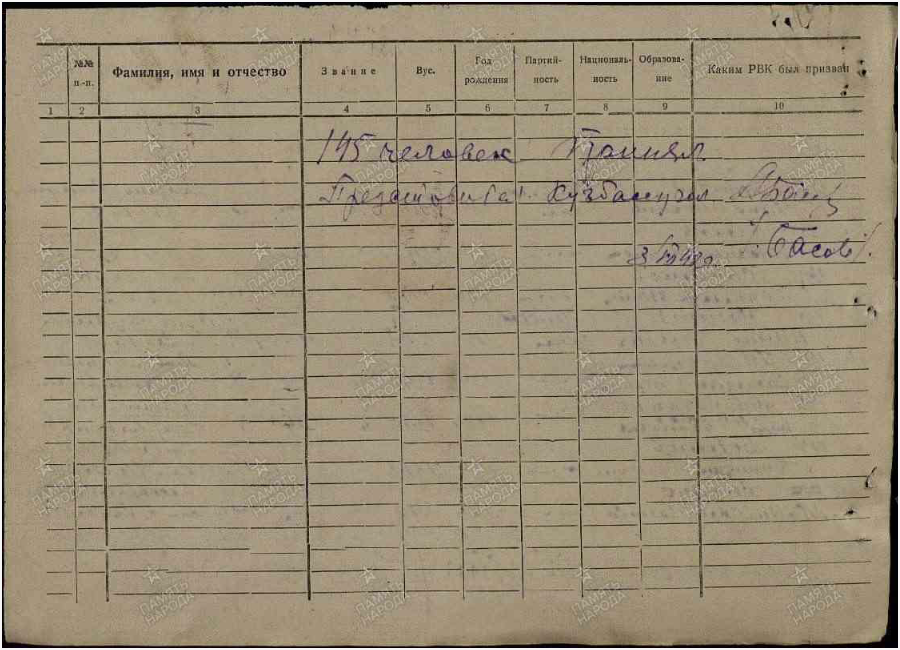 №№ п.-п. Фамилия, имя и отчество Звание Вус. Год рождения Партий-ность Националь-ность Образова-ние Каким РВК был призван
1 2 3 4 5 6 7 8 9 10
145 человек Принял
Представитель Кузбассугол
Басов
ПАМЯТЬ НАРОДА